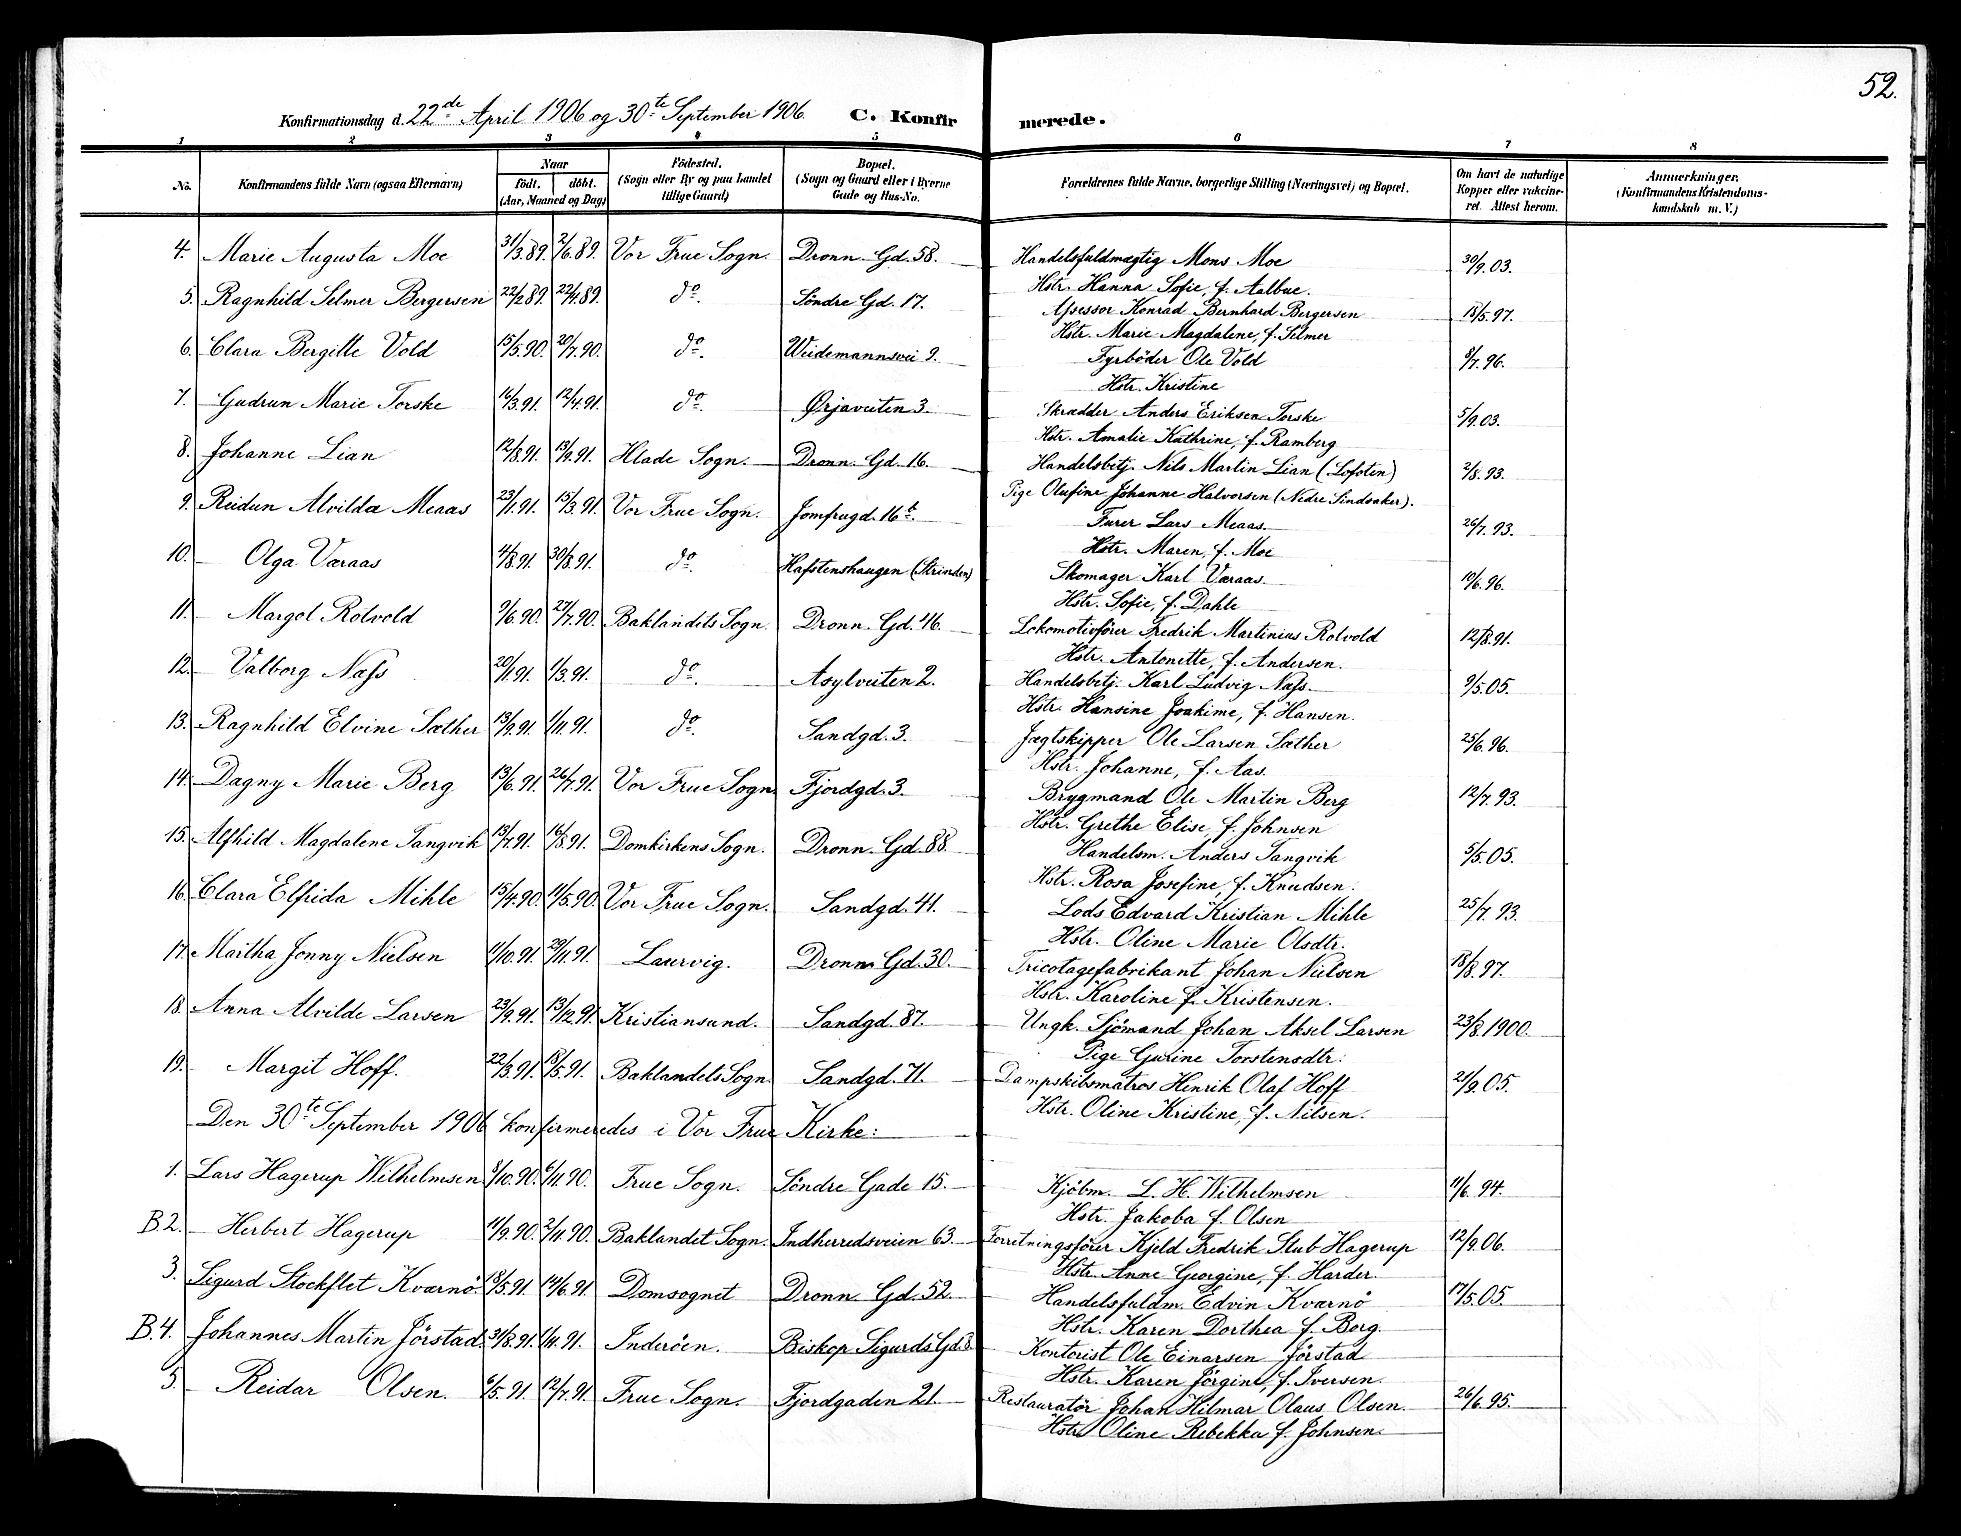 52.
Konfirmationsdag d. 22de April 1906 og 30te September 1906. C. Konfirmerede.
1 2 3 4 5 6 7 8
No. Konfirmandens fulde Navn (ogsaa Efternavn) Naar født. døbt. (Aar, Maaned og Dag) Fødested. (Sogn eller By og paa Landet tillige Gaard) Bopæl. (Sogn og Gaard eller i Byerne Gade og Hus-No. Forældrenes fulde Navne, borgerlige Stilling (Næringsvei) og Bopæl. Om havt de naturlige Kopper eller vakcineret. Attest herom. Anmerkninger. (Konfirmandens Kristendomskundskab m. V.)
4. Marie Augusta Moe 31/3.89. 2/6.89. Vor Frue Sogn. Dronn. Gd. 58. Handelsfuldmægtig Mons Moe 30/9.03.
Hstr. Hanna Sofie, f. Aalbue.
5. Ragnhild Selmer Bergersen 22/2.89. 22/4.89. do. Søndre Gd. 17. Assessor Konrad Bernhard Bergersen 18/5.97.
Hstr. Marie Magdalene, f. Selmer
6. Clara Bergitte Vold 15/5.90. 20/7.90. do. Weidemannsvei 9. Fyrbøder Ole Vold 9/7.96.
Hstr. Kristine
7. Gudrun Marie Torske 16/3.91. 12/4.91. do. Ørjaveiten 3. Skrædder Anders Eriksen Torske 5/9.03.
Hstr. Amalie Kathrine, f. Ramberg
8. Johanne Lian 12/8.91. 13/9.91. Hlade Sogn. Dronn. Gd. 16. Handelsbetj. Nils Martin Lian (Lofoten) 2/8.93.
Pige Olufine Johanne Halvorsen (Nedre Sindsaker).
9. Reidun Alvilda Meaas 23/1.91. 15/3.91. Vor Frue Sogn. Jomfrugd. 16b. Furer Lars Meaas. 26/7.93.
Hstr. Maren, f. Moe
10. Olga Væraas 4/8.91. 30/8.91. do. Hafstenshaugen (Strinden) Skomager Karl Væraas. 19/6.96.
Hstr. Sofie, f. Dahle
11. Margot Rotvold 9/6.90. 27/7.90. Baklandets Sogn. Dronn. Gd. 46. Lokomotivfører Fredrik Martinius Rotvold 12/8.91.
Hstr. Antonette, f. Andersen.
12. Valborg Næss 20/1.91. 1/3.91. do. Asylveiten 2. Handelsbetj. Karl Ludvig Næss. 9/5.05.
Hstr. Hansine Joakime, f. Hansen.
13. Ragnhild Elvine Sæther 13/9.91. 1/11.91. do. Sandgd. 3. Jægtskipper Ole Larsen Sæther 25/6.96.
Hstr. Johanne, f. Aas.
14. Dagny Marie Berg 13/6.91. 26/7.91. Vor Frue Sogn Fjordgd. 3. Brygmand Ole Martin Berg 12/7.93.
Hstr. Grethe Elise, f. Johnsen
15. Alfhild Magdalene Tangvik 13/7.91. 16/8.91. Domkirkens Sogn. Dronn. Gd. 88. Handelsm. Anders Tangvik 5/5.05.
Hstr. Rosa Josefine, f. Knudsen.
16. Clara Elfrida Mihle 15/4.90. 11/5.90. Vor Frue Sogn. Sandgd. 41. Lods Edvard Kristian Mihle 25/7.93.
Hstr. Oline Marie Olsdtr.
17. Martha Jonny Nielsen 11/10.91. 29/11.91. Laurvig. Dronn. Gd. 30. Tricotagefabrikant Johan Nielsen 18/8.97.
Hstr. Karoline f. Kristensen.
18. Anna Alvilde Larsen 23/9.91. 13/12.91. Kristiansund. Sandgd. 87. Ungk. Sjømand Johan Aksel Larsen 23/8.1900.
Pige Gurine Torstensdtr.
19. Margit Hoff. 22/3.91. 18/5.91. Baklandets Sogn. Sandgd. 71. Dampskibsmatros Henrik Olaf Hoff 21/9.05.
Hstr. Oline Kristine, f. Nilsen.
Den 30te September 1906 konfirmeredes i Vor Frue Kirke:
1. Lars Hagerup Wilhelmsen 8/10.90. 6/11.90. Frue Sogn. Søndre Gade 15. Kjøbm. L. H. Wilhelmsen 11/6.94.
Hstr. Jakoba f. Olsen
B.2. Herbert Hagerup 11/9.90. 2/11.90. Baklandet Sogn. Indherredsveien 63. Forretningsfører Kjeld Fredrik Stub Hagerup 12/9.06.
Hstr. Anne Georgine, f. Harder.
3. Sigurd Stockflet Kværnø 18/5.91. 14/6.91. Domsognet Dronn. Gd. 52. Handelsfuldm. Edvin Kværnø 17/5.05.
Hstr. Karen Dorthea f. Borg.
B.4. Johannes Martin Jörstad. 31/8.91. 1/11.91. Inderøen. Biskop Sigurds Gd. 8. Kontorist Ole Einarsen Jörstad
Hstr. Karen Jørgine, f. Iversen.
5. Reidar Olsen. 6/5.91. 12/7.91. Frue Sogn. Fjordgaden 21. Restauratør Johan Hilmar Olaus Olsen. 26/6.95.
Hstr. Oline Rebekka f. Johnsen.